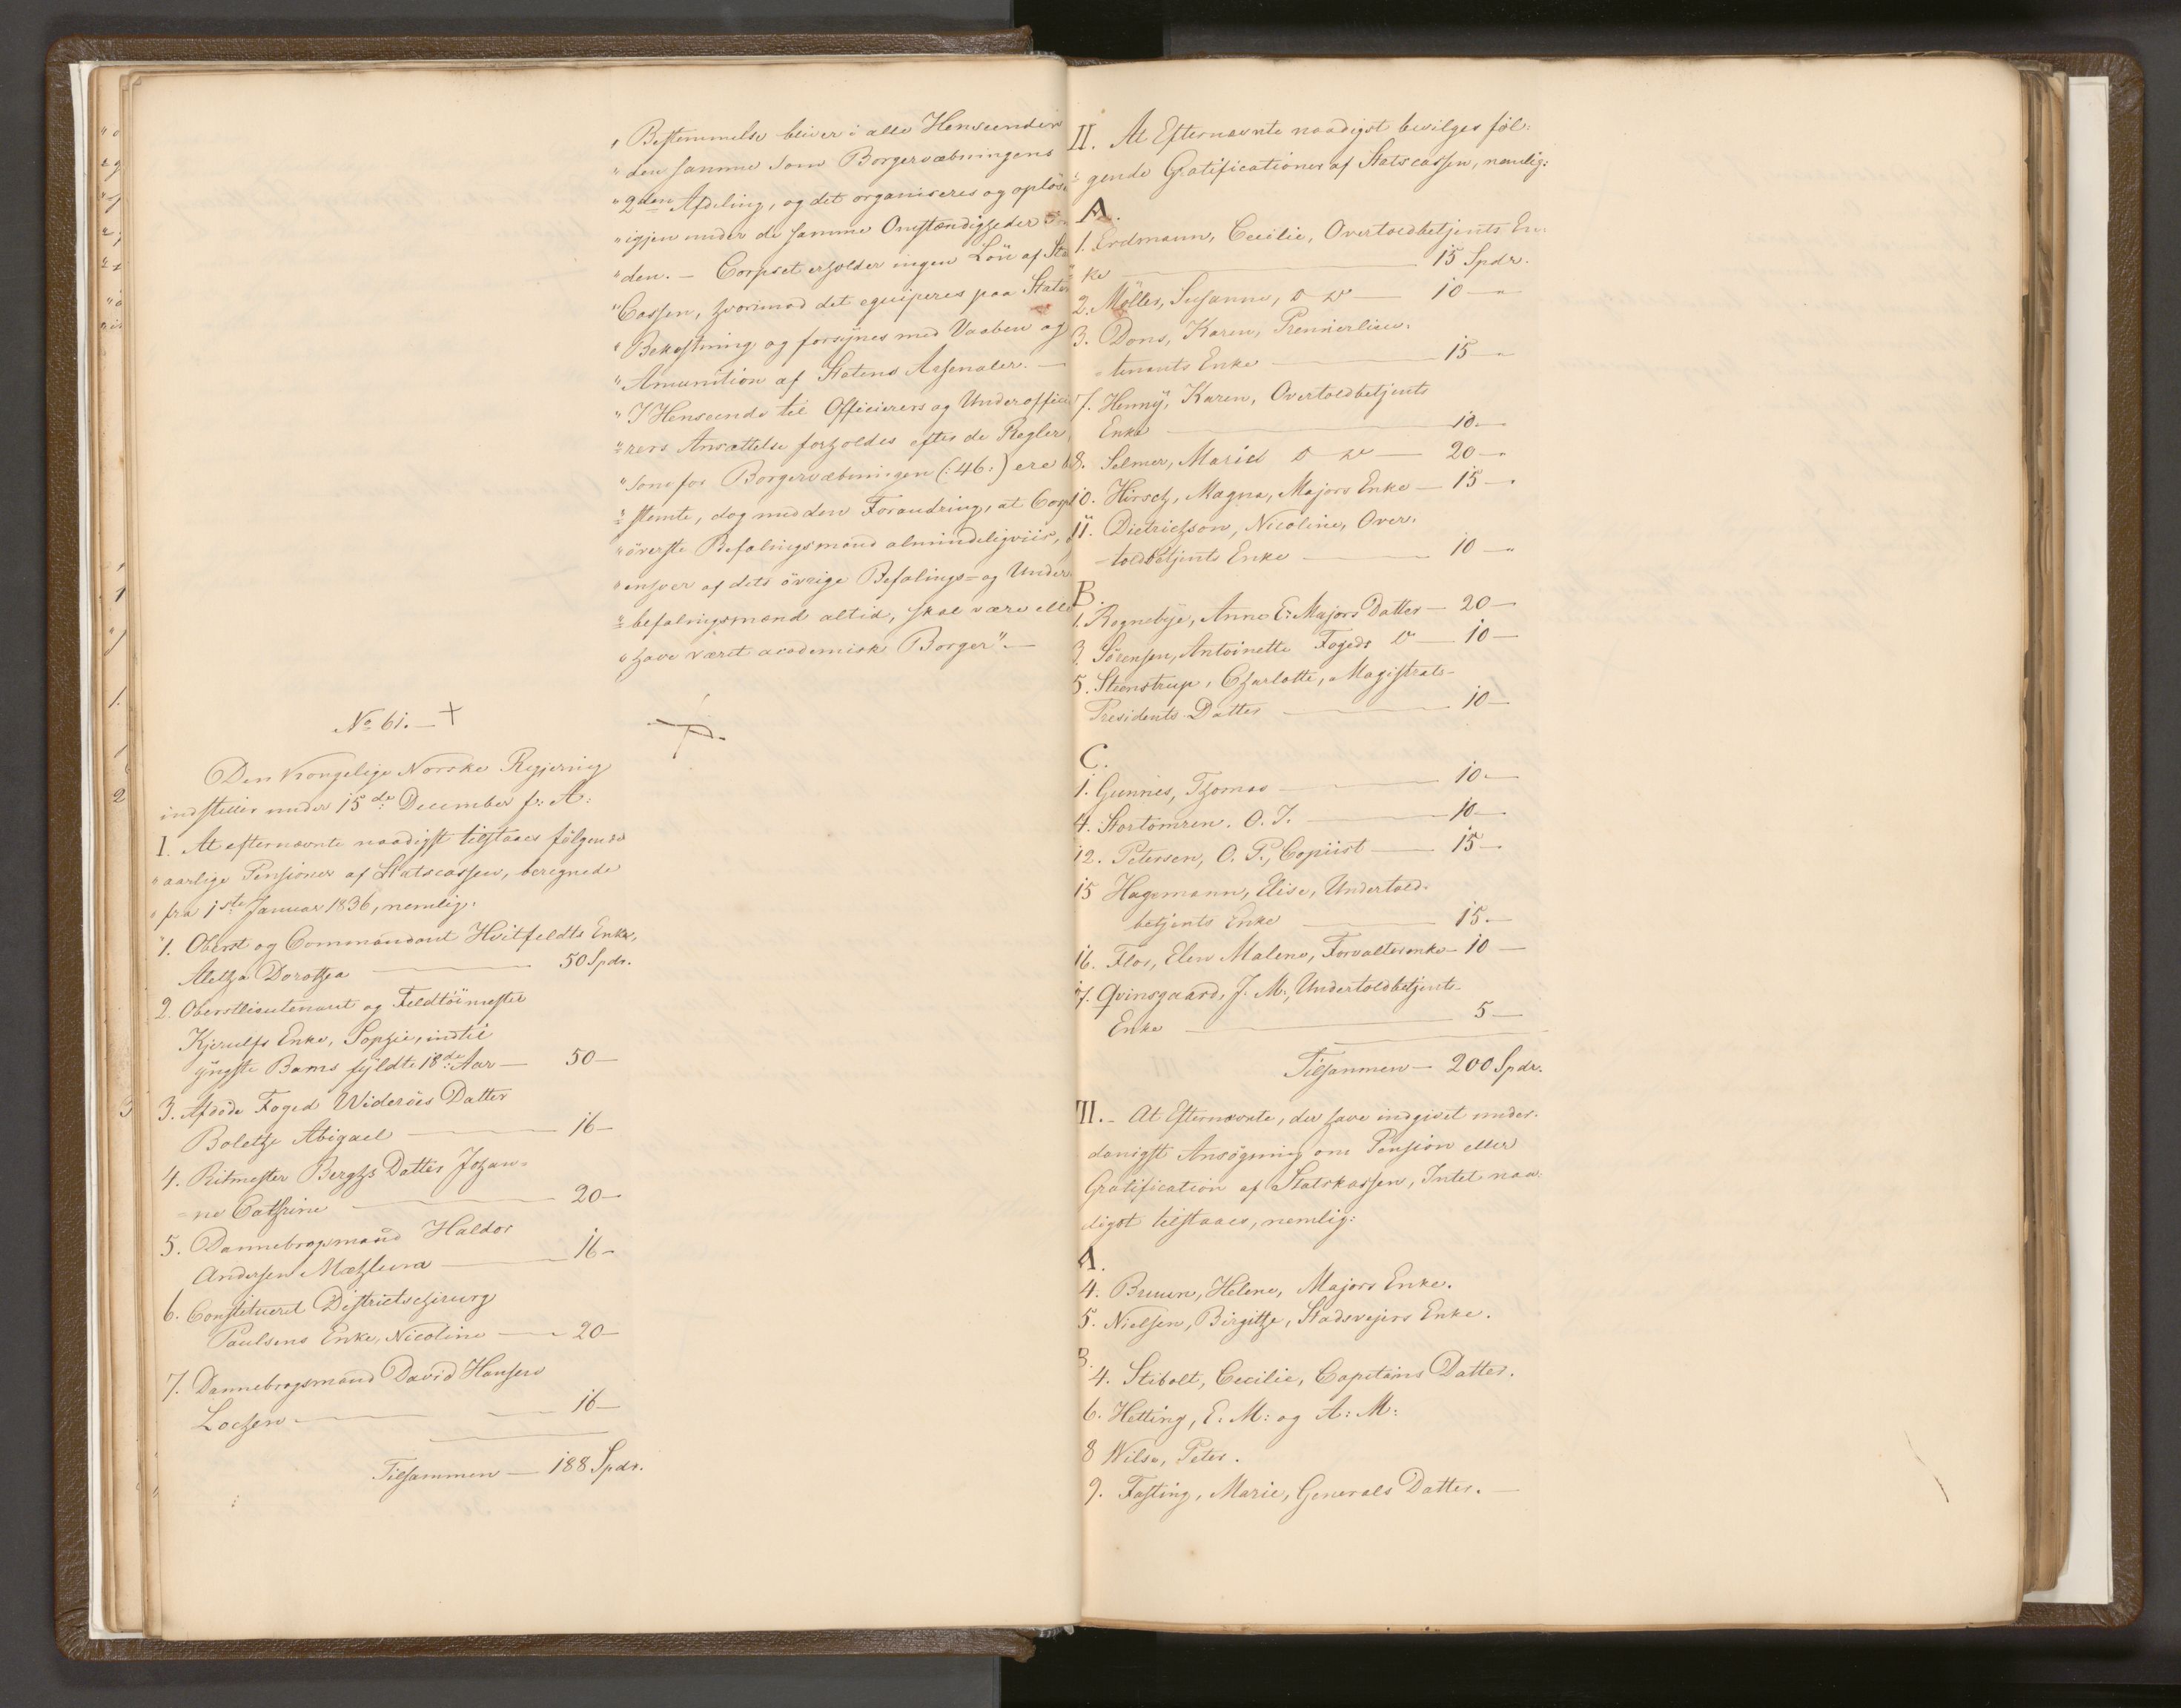 „ Bestemmelse bliver i alle Henseender
„ den samme som Borgervæbningens
„ 2den Afdeling, og det organiseres og oplöse
„ igjen under de samme Omstændigheder som
„ den. — Corpset erholder ingen Lön af Stats
„ Cassen, hvorimod det equiperes paa Statens
„ Bekostning og forsynes med Vaaben og
„ Amunition af Statens Arsenaler. —
„ I Henseende til Officierers og Underoffici
„ rers Ansættelse forholdes efter de Regler,
„ som for Borgervæbningen (: 46 :) ere be
„ stemte, dog med den Forandring, at Corps
„ överste Befalingsmand almindeligviis,
„ enhver af dets övrige Befalings= og Under
„ befalingsmænd altid, skal være eller
„ have været academisk Borger". —
No 61. — +
Den Kongelige Norske Regjering
indstiller under 15de December f: A:
I. At efternævnte naadigst tilstaaes fölgende
„ aarlige Pensioner af Statscassen, beregnede
„ fra 1ste Januar 1836, nemlig:
1. Oberst og Commandant Hvitfeldts Enke,
Aletha Dorothea — 50 Spdr.
2. Oberstlieutenant og Feldtöimester
Kjerulfs Enke, Sophie, indtil
yngste Barns fyldte 18de Aar — 50 —
3. Afdöde Foged Wideröes Datter
Bolethe Abigael — 16 —
4. Ritmester Berghs Datter Johan=
=ne Cathrine — 20 —
5. Dannebrogsmand Haldor
Andersen Mæhlum — 16 —
6. Constitueret Districtschirurg
Paulsens Enke, Nicoline — 20 —
7. Dannebrogsmand David Hansen
Lochen — 16 —
Tilsammen — 188 Spdr.
II. At Efternævnte naadigst bevilges föl:
gende Gratificationer af Statscassen, nemlig:
A.
1. Erdmann, Cecilie, Overtoldbetjents En:
ke — 15 Spdr.
2. Möller, Susanne, D o — 10 — "
3. Dons, Karen, Premierlieu:
=tenants Enke — 15 — "
7. Henny, Karen, Overtoldbetjents
Enke — 10 —
8. Selmer, Marie D o — 20 —
10. Hirsch, Magna, Majors Enke — 15 —
11. Dietrichson, Nicoline, Over:
-toldbetjents Enke — 10 — "
B.
1. Rognebye, Anne E. Majors Datter — 20 —
3. Sörensen, Antoinette Fogeds D — 10 —
5. Steenstrup, Charlotte, Magistrats-
Presidents Datter — 10 —
C.
1. Gunnes, Thomas — 10 —
4. Stortomren. O. J. — 10 —
12. Petersen, O. P., Copiist — 15 —
15 Hagemann, Elise, Undertold:
betjents Enke — 15 —
16. Flor, Elen Malene, Forvalterenke — 10 —
17. Qvinsgaard, J. M., Undertoldbetjents-
Enke — 5 —
Tilsammen — 200 Spdr.
III. — At Efternævnte, der have indgivet under:
danigst Ansögning om Pension eller
Gratification af Statskassen, Intet naa:
digst tilstaaes, nemlig:
A.
4. Bruun, Helene, Majors Enke.
5. Nielsen, Birgithe, Stadsvejers Enke.
B.
4. Stibolt, Cecilie, Capitains Datter.
6. Hetting, E. M: og A: M:
8 Wilse, Peter.
9. Fasting, Marie, Generals Datter. —